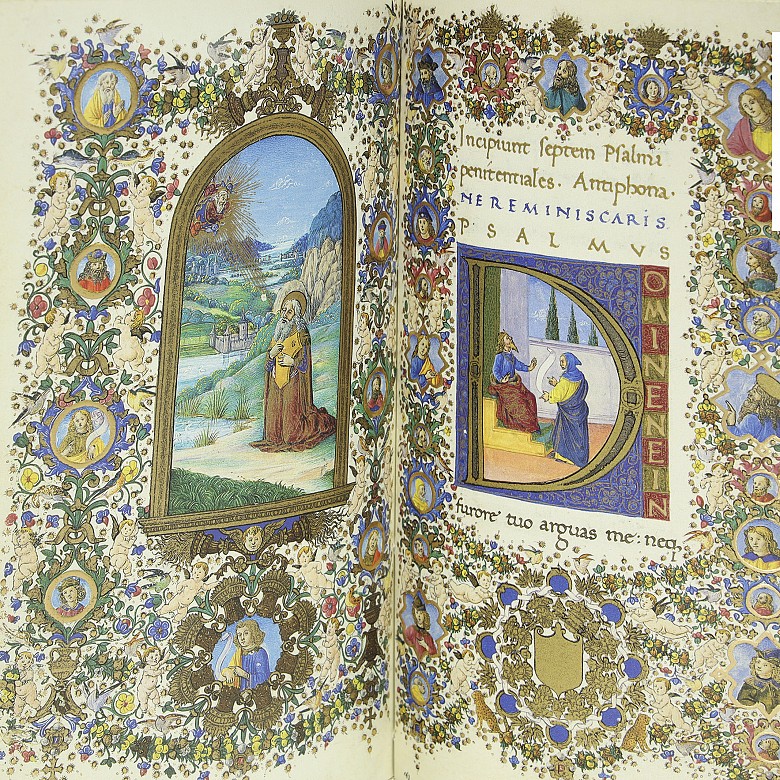 Incipiunt septem Psalmi
penitentiales. Antiphona.
NE REMINISCARIS
PSALMVS
DOMINE NE IN
furore tuo arguas me: neq